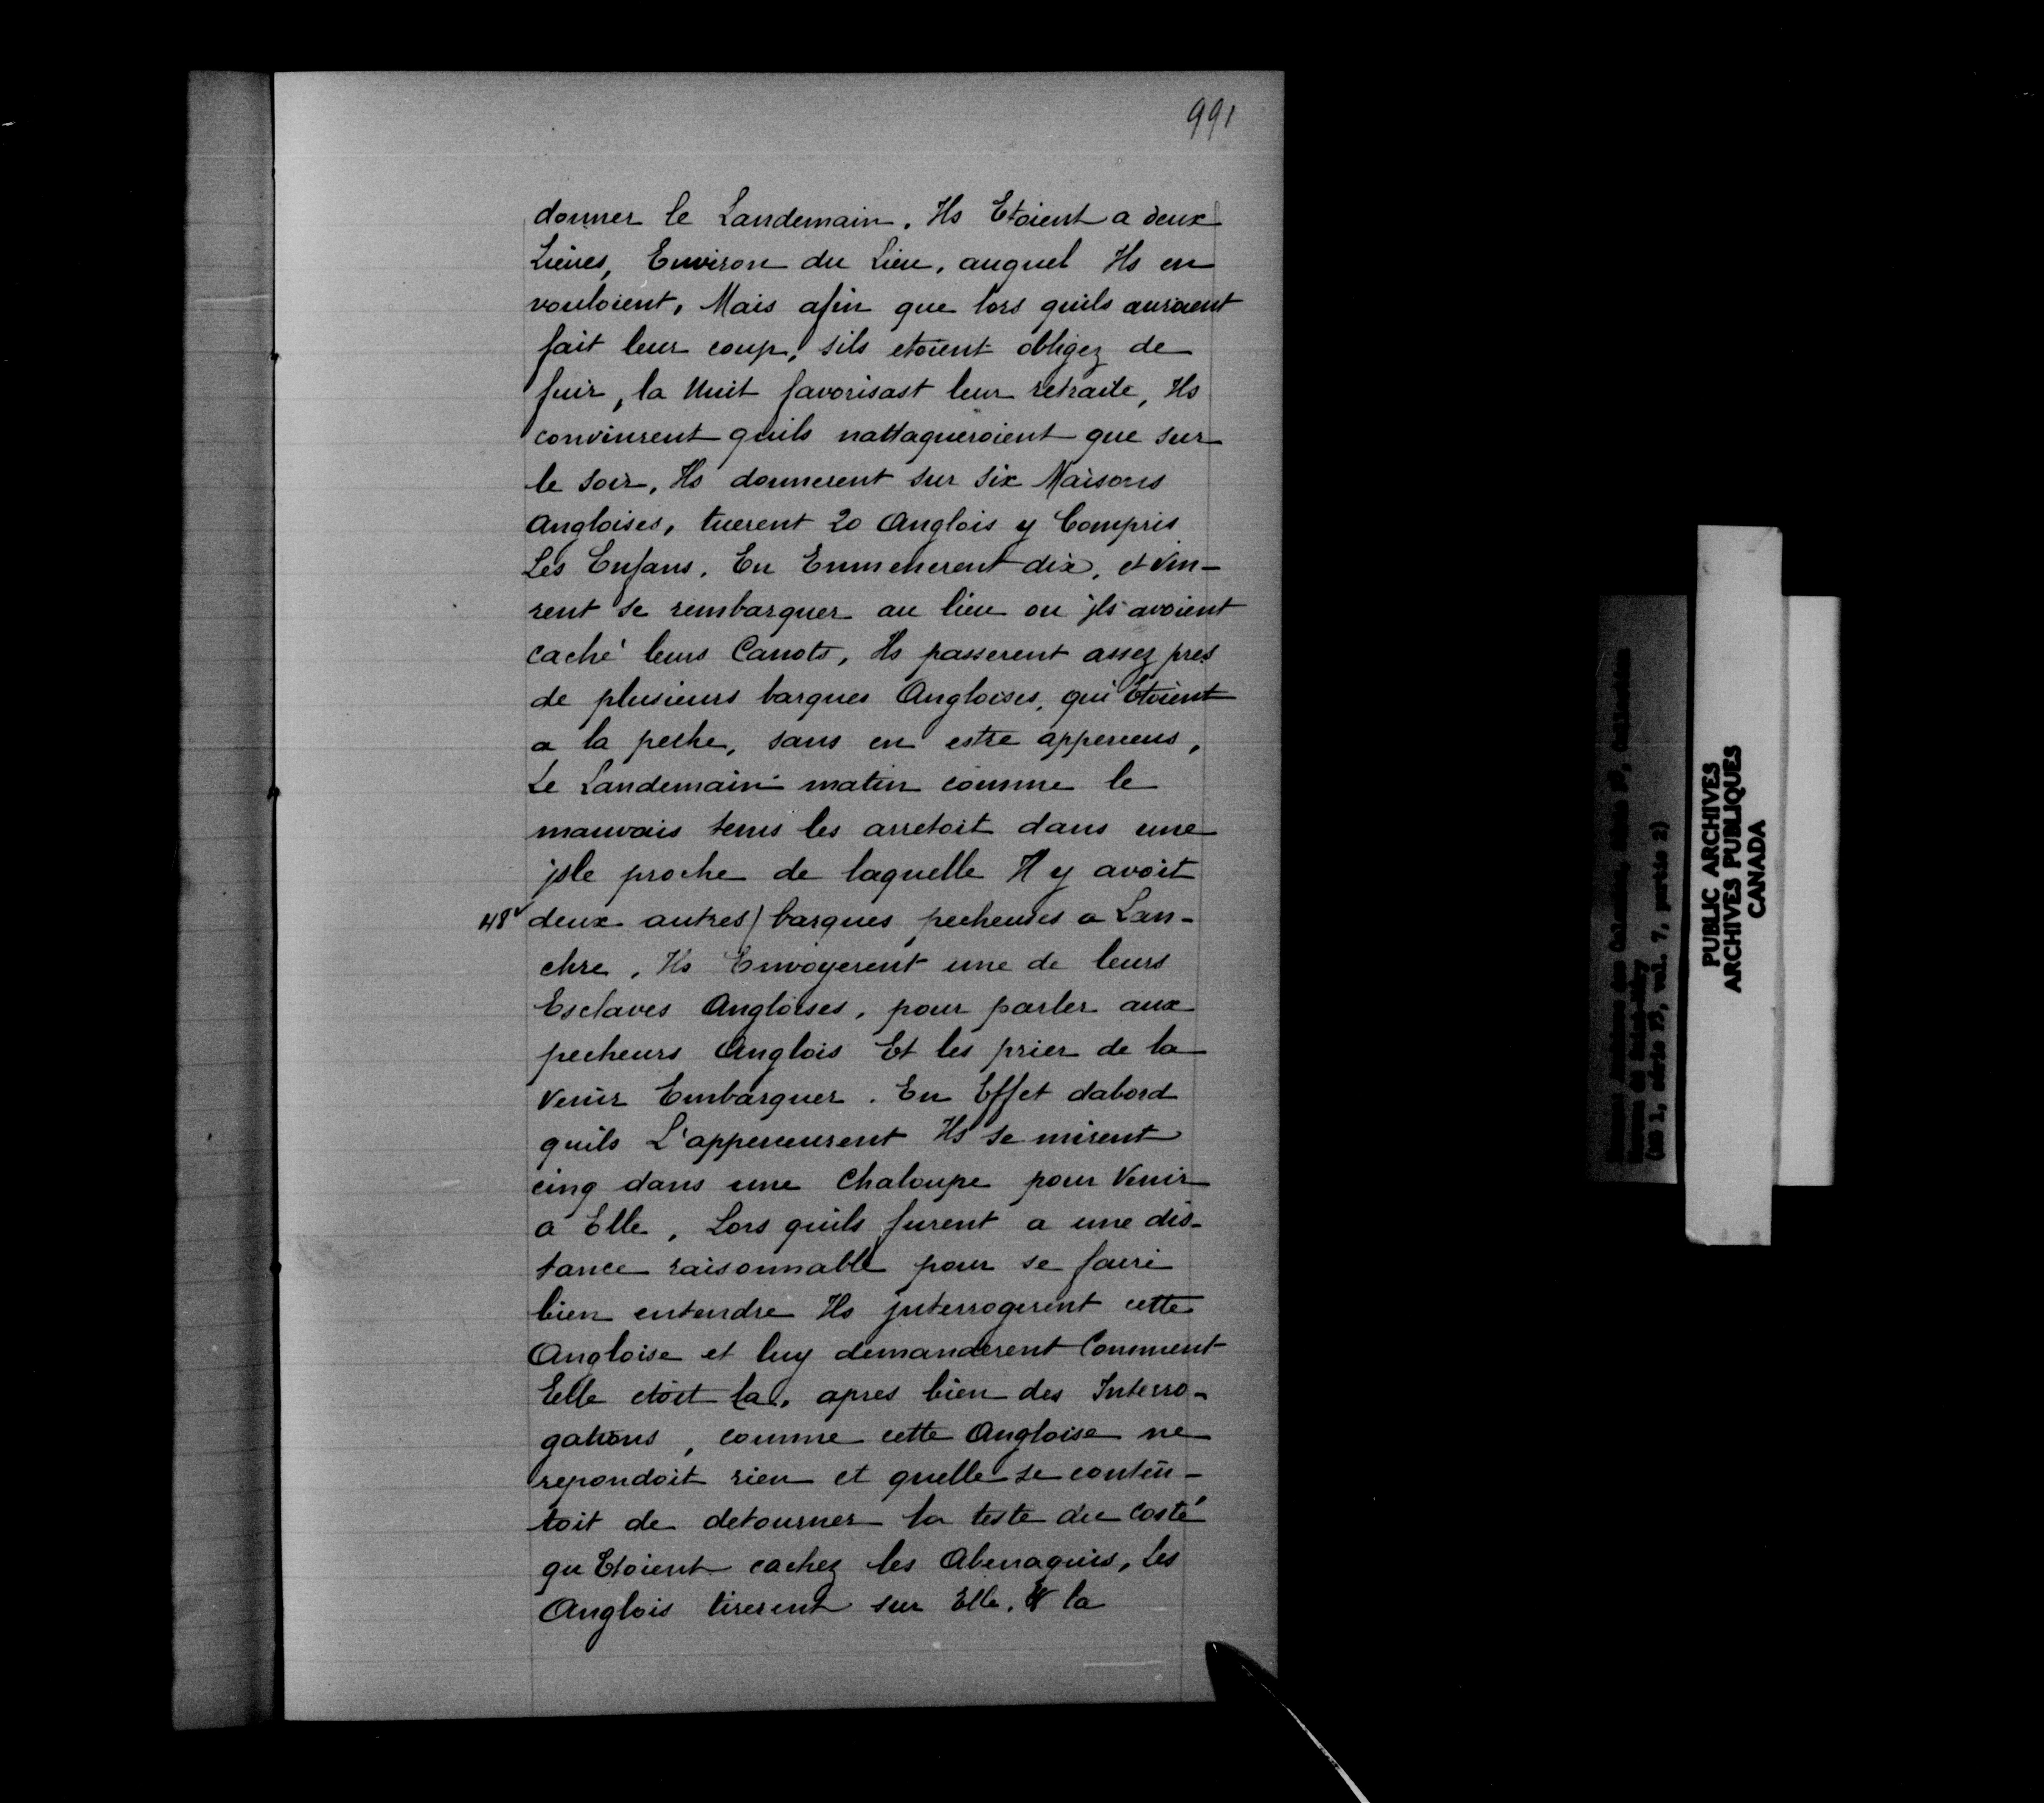 991
donner le Landemain. Ils Etoient a deux
Lieües, Environ du Lieu, auquel Ils en
vouloient, Mais afin que lors quils auroient
fait leur coup, sils etoient obligez de
fuir, la Nuit favorisast leur retraite, Ils
convinrent quils nattaqueroient que sur
le soir. Ils donnerent sur six Maisons
angloises, tuerent 20 Anglois y Compris
Les Enfans. En Enmenerent dix, et vin-
rent se rembarquer au lieu ou jls avoient
caché leurs Canots, Ils passerent assez pres
de plusieurs barques Angloises, qui Etoient
a la peche, sans en estre apperceus,
Le Landemain matin comme le
mauvais tems les arretoit dans une
jsle proche de laquelle Il y avoit
48v deux autres / barques pecheuses a Lan-
chre. Ils Envoyerent une de leurs
Esclaves Angloises, pour parler aux
pecheurs Anglois Et les prier de la
Venir Embarquer. En Effet dabord
quils L'apperceurent Ils se mirent
cinq dans une Chaloupe pour Venir
a Elle, Lors quils furent a une dis-
tance raisonnable pour se faire
bien entendre Ils jnterrogerent cette
Angloise et luy demanderent Comment
Elle etoit la. apres bien des Interro-
gations, comme cette Angloise ne
repondoit rien et quelle se conten-
toit de detourner la teste du Costé
qu Etoient cachez les Abenaquis, Les
Anglois tirerent sur Elle, Et la
PUBLIC ARCHIVES
ARCHIVES PUBLIQUES
CANADA
(MG 1, série F3, vol. 7, partie 2)